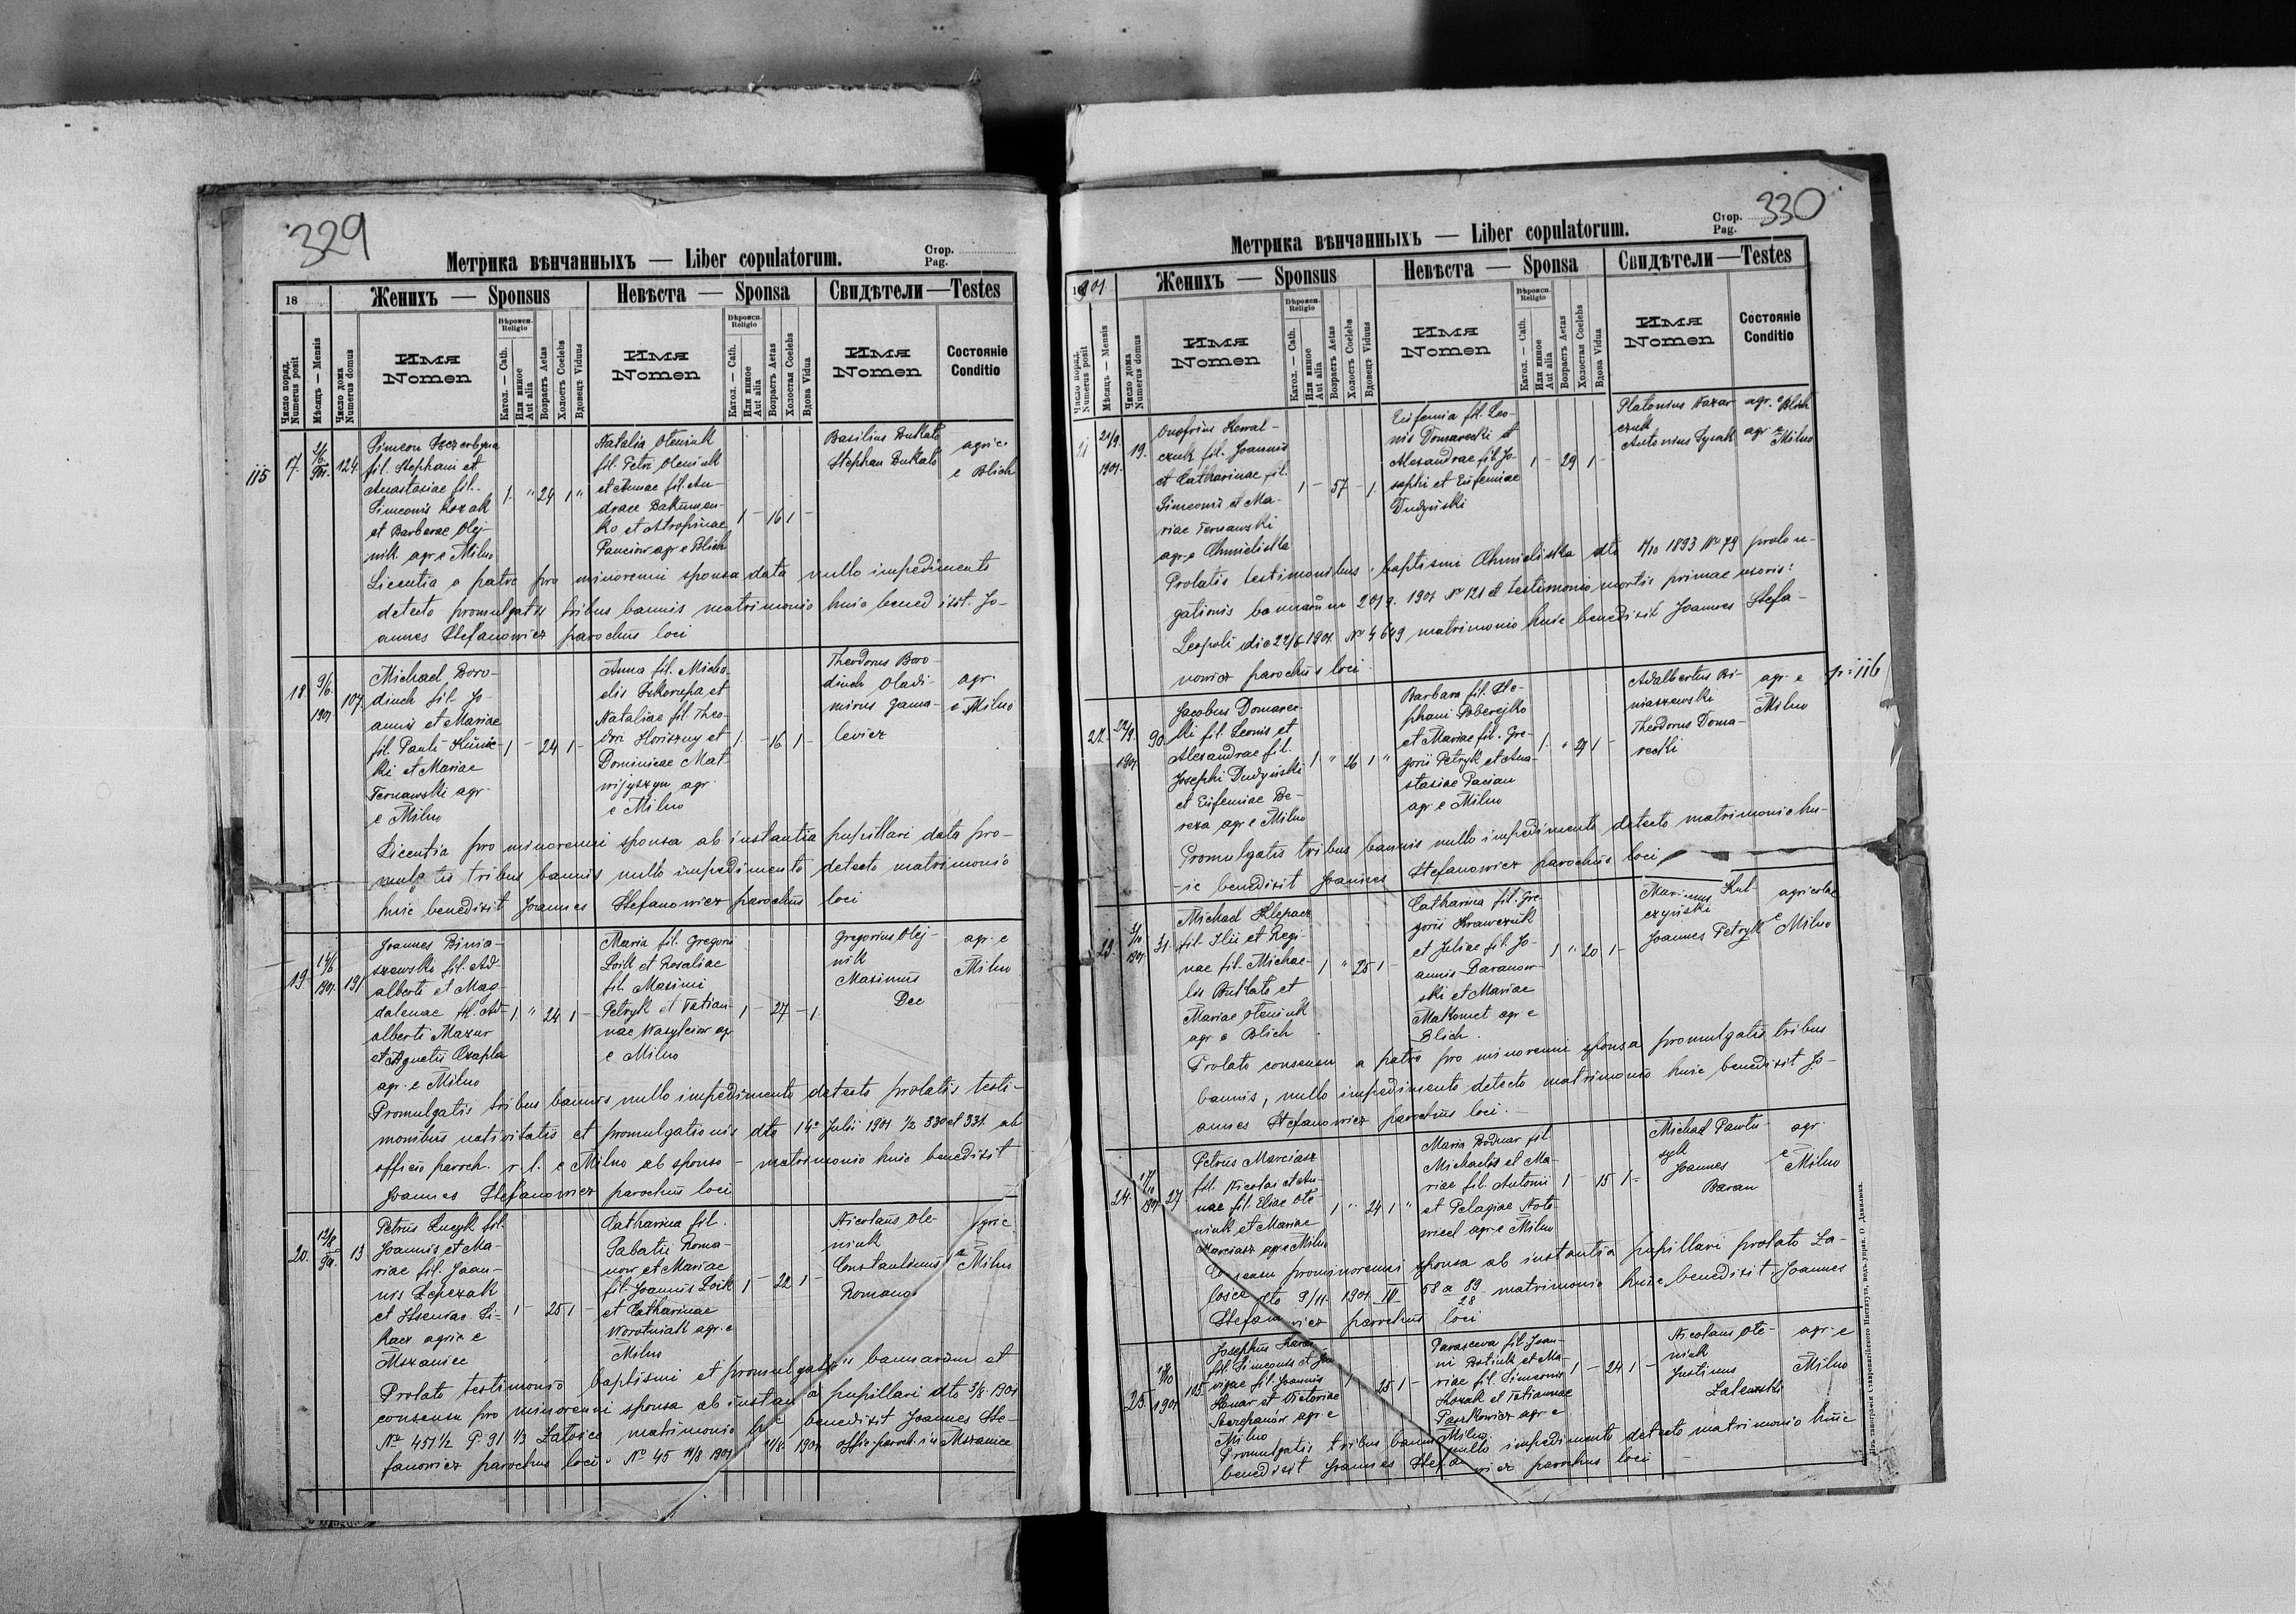 329
Метрика вѣнчанныхъ — Liber copulatorum.
Стор.
Pag.
18
Женихъ — Sponsus
Невѣста — Sponsa
Свидѣтели — Testes
Число поряд. Numerus posit
Мѣсяць — Mensis
Число дома Numerus domus
Имя Nomen
Вѣроисп. Religio
Катол. — Cath.
Или инное Aut alia
Возрасть Aetas
Холостъ Coelebs
Вдовець Viduus
Имя Nomen
Вѣроисп. Religio
Катол. — Cath.
Или инное Aut alia
Возрасть Aetas
Холостая Coelebs
Вдова Vidua
Имя Nomen
Состояніе Conditio
115
17. 124
Simeon
fil. Stephani et
Anastasiae fil.
Simeonis Kozak
et Barbarae Olej-
nik agr. e Milno
1 " 24 1 "
Natalia Oleniuk
fil. Petri Oleniuk
et Annae fil. An-
ko et
agr. e Blich
1 - 16 1 -
Basilius Bukało
Stephan Bukało
agric.
e Blich
Licentia a patre pro minorenni sponsa data nullo impedimento
detecto promulgatis tribus bannis matrimonio huic benedixit Jo-
annes Stefanowicz parochus loci
18. 9/6 1901 107
Michael Boro-
diuch fil. Jo-
annis et Mariae
fil. Pauli
ki et Mariae
Ternawski agr.
e Milno
1 - 24 1 -
Anna fil. Micha-
elis Szkorupa et
Nataliae fil. Theo-
dori Horiszny et
Dominicae Mat-
wijyszyn agr.
e Milno
1 - 16 1 -
Theodorus Boro-
diuch Wladi-
mirus Jama-
lewicz
agr.
e Milno
Licentia pro minorenni sponsa ab instantia pupillari data pro-
mulgatis tribus bannis nullo impedimento detecto matrimonio
huic benedixit Joannes Stefanowicz parochus loci
19. 14/6 1901. 191
Joannes Binia-
szewski fil. Ad-
alberti et Mag-
dalenae fil. Ad-
alberti Mazur
et Agnetis Czapla
agr. e Milno
1 " 24 1 -
Maria fil. Gregorii
Łoik et Rosaliae
fil. Maximi
Petryk et Tatian-
nae Wasylciow agr
e Milno
1 - 27 - 1
Gregorius Olej-
nik
Maximus
Dec
agr. e
Milno
Promulgatis tribus bannis nullo impedimento detecto prolatis testi-
monibus nativitatis et promulgationis dto 14 Julii 1901 1/2 330 et 331. ab
officio paroch. r. l. e Milno ab sponso - matrimonio huic benedixit
Joannes Stefanowicz parochus loci
20. 12/8 13
Petrus Łucyk fil.
Joannis et Ma-
riae fil. Joan-
nis Łepczak
et Xseniae Si-
kacz agric. e
Mszaniec
1 - 25 1 -
Catharina fil.
Sabatii Roma-
now et Mariae
fil. Joannis Łoik
et Catharinae
Worotniak agr. e
Milno
1 - 22 1 -
Nicolaus Ole-
niuk
Constantinus
Romano
agric
e Milno
Prolato testimonio baptismi et promulgationis bannorum et
consensu pro minorenni sponsa ab instantia pupillari dto 3/8 1901
No 451 1/2 P 91 1/3 Załośce matrimonio huic benedixit Joannes Ste-
fanowicz parochus loci. No 45 11/8 1901 11/8 1901 offic. paroch. in Mszaniec
330
Метрика вѣнчанныхъ — Liber copulatorum.
Стор.
Pag.
1901.
Женихъ — Sponsus
Невѣста — Sponsa
Свидѣтели — Testes
Число поряд. Numerus posit
Мѣсяць — Mensis
Число дома Numerus domus
Имя Nomen
Вѣроисп. Religio
Катол. — Cath.
Или инное Aut alia
Возрасть Aetas
Холостъ Coelebs
Вдовець Viduus
Имя Nomen
Вѣроисп. Religio
Катол. — Cath.
Или инное Aut alia
Возрасть Aetas
Холостая Coelebs
Вдова Vidua
Имя Nomen
Состояніе Conditio
21 21/9. 1901. 19.
Onofrius Kowal-
czuk fil. Joannis
et Catharinae fil.
Simeonis et Ma-
riae Ternawski
agr. e Chmieliska
1 - 57 - 1.
Eufemia fil. Leo-
nis Domarecki et
Alexandrae fil. Jo-
sephi et Eufemiae
Dudyński
1 - 29 1 -
Platonius Nazar-
czuk
Antonius Łysak
agr. e Blich
agr. e Milno
Prolatis testimonibus: baptismi Chmieliska dto 1893 No 79 promul-
gationis bannorum 20/9. 1901 No 121 et testimonio mortis primae uxoris:
Leopoli die 22/6 1901. No 4649 matrimonio huic benedixit Joannes Stefa-
nowicz parochus loci.
22. 22/9. 1901 90.
Jacobus Domarec-
ki fil. Leonis et
Alexandrae fil.
Josephi Dudyński
et Eufemiae Be-
reza agr. e Milno
1 " 26 1 "
Barbara fil. Ste-
phani Zaberejko
et Mariae fil. Gre-
gorii Petryk et Ana-
stasiae Pacian
agr. e Milno
1. " 21 1 -
Adalbertus Bi-
niaszewski
Theodorus Doma-
recki
agr. e
Milno
116
Promulgatis tribus bannis nullo impedimento detecto matrimonio hu-
-ic benedixit Joannes Stefanowicz parochus loci
23. 1901 31.
Michael Klepacz
fil. Ilii et Regi-
nae fil. Michae-
lis Bukało et
Mariae Oleniuk
agr. e Blich
1 " 25 1 -
Catharina fil. Gre-
gorii Krawczuk
et Juliae fil. Jo-
annis Baranow-
ski et Mariae
Makomet agr. e
Blich.
1 " 20 1 -
Marinus Kul-
czyński
Joannes Petryk
agricolae
e Milno
Prolato consensu a patre pro minorenni sponsa promulgatis tribus
bannis, nullo impedimento detecto matrimonio huic benedixit Jo-
annes Stefanowicz parochus loci.
24. 1901 27
Petrus Marciasz
fil. Nicolai et An-
nae fil. Eliae Ole-
niuk et Mariae
Marciasz agr. e Milno
1 " 24 1 "
Maria Bodnar fil.
Michaelis et Ma-
riae fil. Antonii
et Pelagiae Note-
agr. e Milno
1 - 15 1 -
Michael Pawlu-
syk
Joannes
Baran
agr.
e Milno
Consensu pro minorenni sponsa ab instantia pupillari prolato Za-
łośce dto 9/11 1901. IV 58 a 89/28 matrimonio huic benedixit Joannes
Stefanowicz parochus loci
25. 1901 105
Josephus
fil. Simeonis et
fil. Joannis
et Victoriae
Szczepanów agr. e
Milno
1 - 25 1 -
Parascewa fil. Joan-
nis et Ma-
riae fil. Simeonis
Kozak et Tatiannae
Paszkowicz agr. e
Milno.
1 - 24 1 -
Nicolaus Ole-
niuk
Justinus
Zalewski
agr. e
Milno
Promulgatis tribus bannis nullo impedimento detecto matrimonio huic
benedixit Joannes Stefanowicz parochus loci